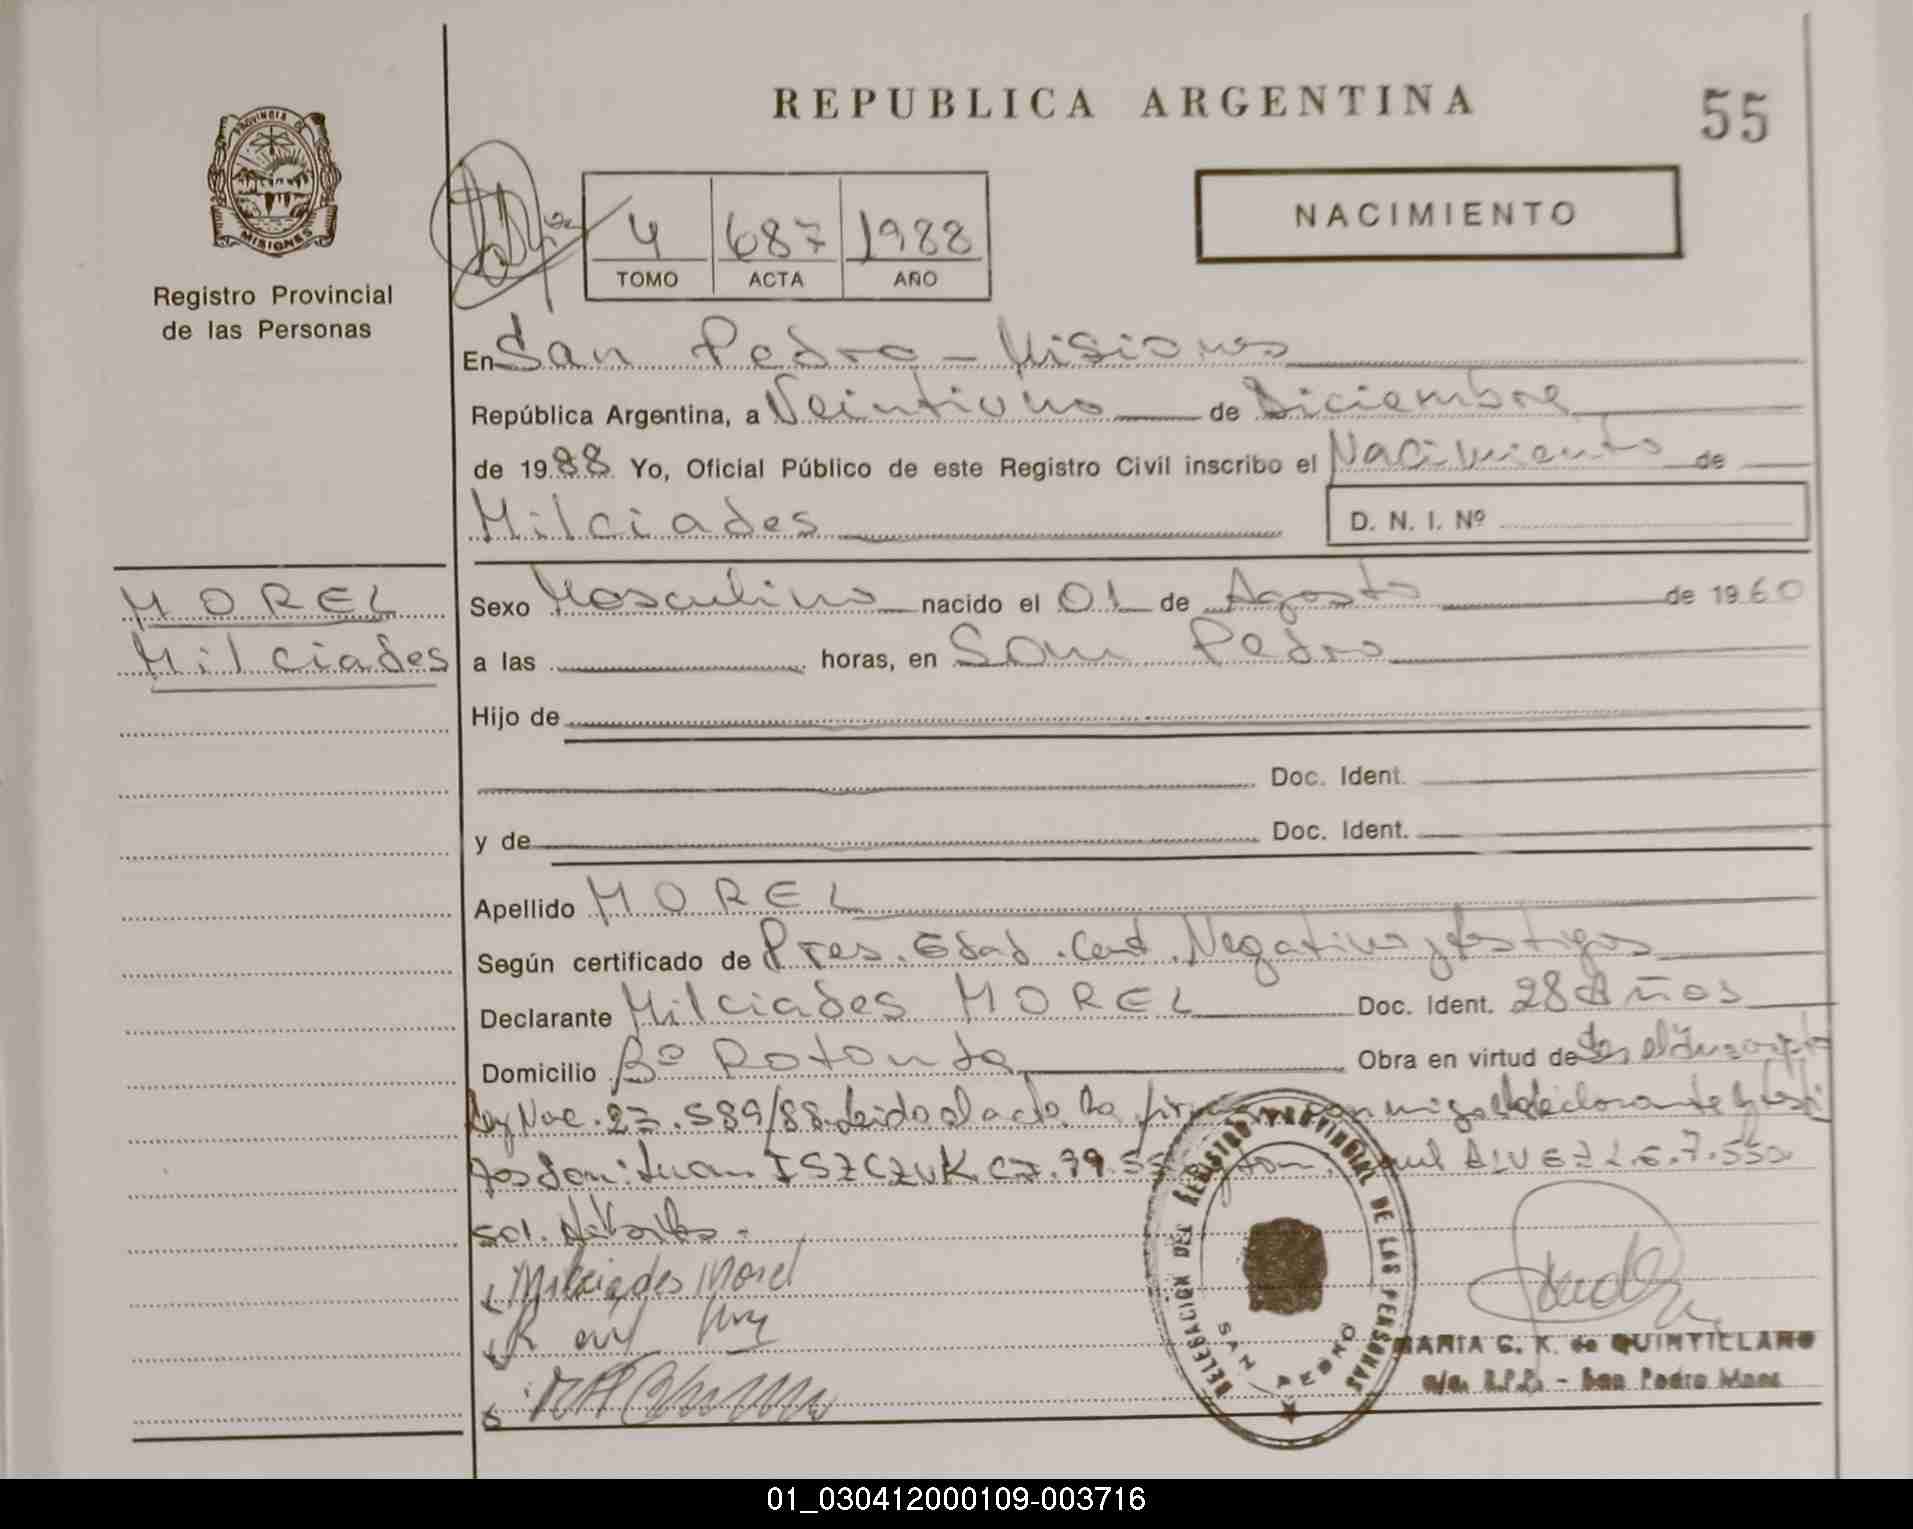 REPUBLICA ARGENTINA
55
PROVINCIA DE
MISIONES
Registro Provincial
de las Personas
4 687 1988
TOMO ACTA AÑO
NACIMIENTO
En San Pedro - Misiones
República Argentina, a Veintiuno de Diciembre
de 1988 Yo, Oficial Público de este Registro Civil inscribo el Nacimiento de
Milciades
D. N. I. Nº
MOREL
Milciades
Sexo Masculino nacido el 01 de Agosto de 1960
a las horas, en San Pedro
Hijo de
Doc. Ident.
y de Doc. Ident.
Apellido MOREL
Según certificado de Pres. Edad. Cert. Negativo y testigos
Declarante Milciades MOREL Doc. Ident. 28 Años
Domicilio Bº Rotonda Obra en virtud de Ser el Inscripto
Ley Nac. 23.589/88. Leido el acta la declarante y testi
gos Don: Juan ISZCZUK
Milciades Morel
REGISTRO PROVINCIAL DE LAS PERSONAS
DELEGACION
SAN PEDRO
MARIA G. K. de QUINTILLANO
San Pedro Mnes
01_030412000109-003716